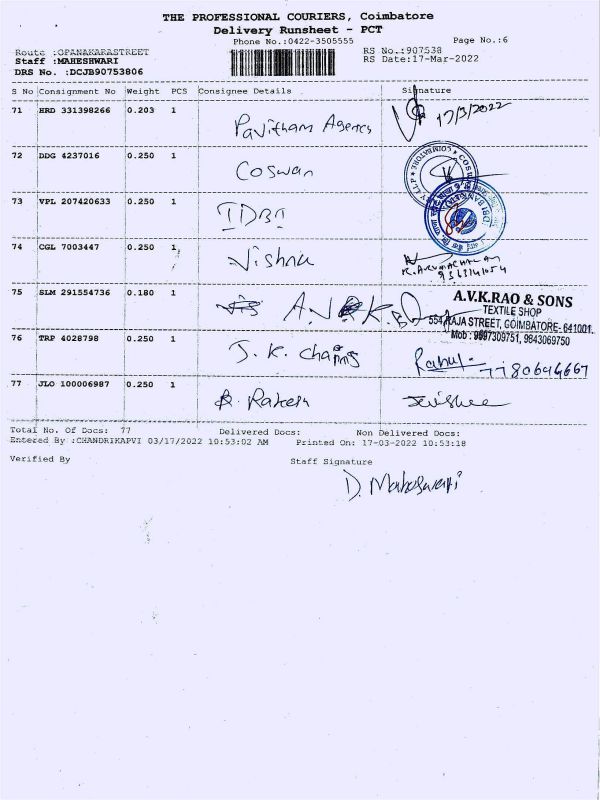 THE PROFESSIONAL COURIERS, Coimbatore
Delivery Runsheet - PCT
Phone No.:0422-3505555
Page No.:6
Route :OPANAKARASTREET
RS No.:907538
Staff :MAHESHWARI
RS Date:17-Mar-2022
DRS No. :DCJB90753806
S No Consignment No Weight PCS Consignee Details Signature
71 HRD 331398266 0.203 1 Pavitham Agency 17/3/2022
72 DDG 4237016 0.250 1 Coswan
COIMBATORE
73 VPL 207420633 0.250 1 IDBI
IDBI BANK
74 CGL 7003447 0.250 1 Vishnu
K. ARUMACHALAM
75 SLM 291554736 0.180 1 A.V.K.
A.V.K.RAO & SONS
TEXTILE SHOP
554, RAJA STREET, COIMBATORE- 641001.
Mob : 9897309751, 9843069750
76 TRP 4028798 0.250 1 J. K. Chains Rahul - 7780646667
77 JLO 100006987 0.250 1 R. Rakesh
Total No. Of Docs: 77 Delivered Docs: Non Delivered Docs:
Entered By :CHANDRIKAPVI 03/17/2022 10:53:02 AM Printed On: 17-03-2022 10:53:18
Verified By Staff Signature
D. Maheswari